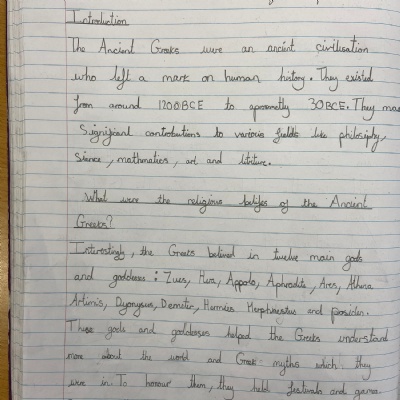 Introduction
The Ancient Greeks were an ancient civilisation
who left a mark on human history. They existed
from around 1200BCE to 30BCE. They
Significant contributions to various fields like philosiphy,
science, mathmatics, art and
What were the religious of the Ancient
Greeks?
Interestingly, the Greeks belived in twelve main gods
and goddesses : Zues, Hera, Appolo, Aphrodite, Ares, Athena
Artimis, Dyonysus, Demeter, Hermies and
These gods and goddesses helped the Greeks understand
more about the world and Greek myths which they
were in. To honour them, they held festivals and games.